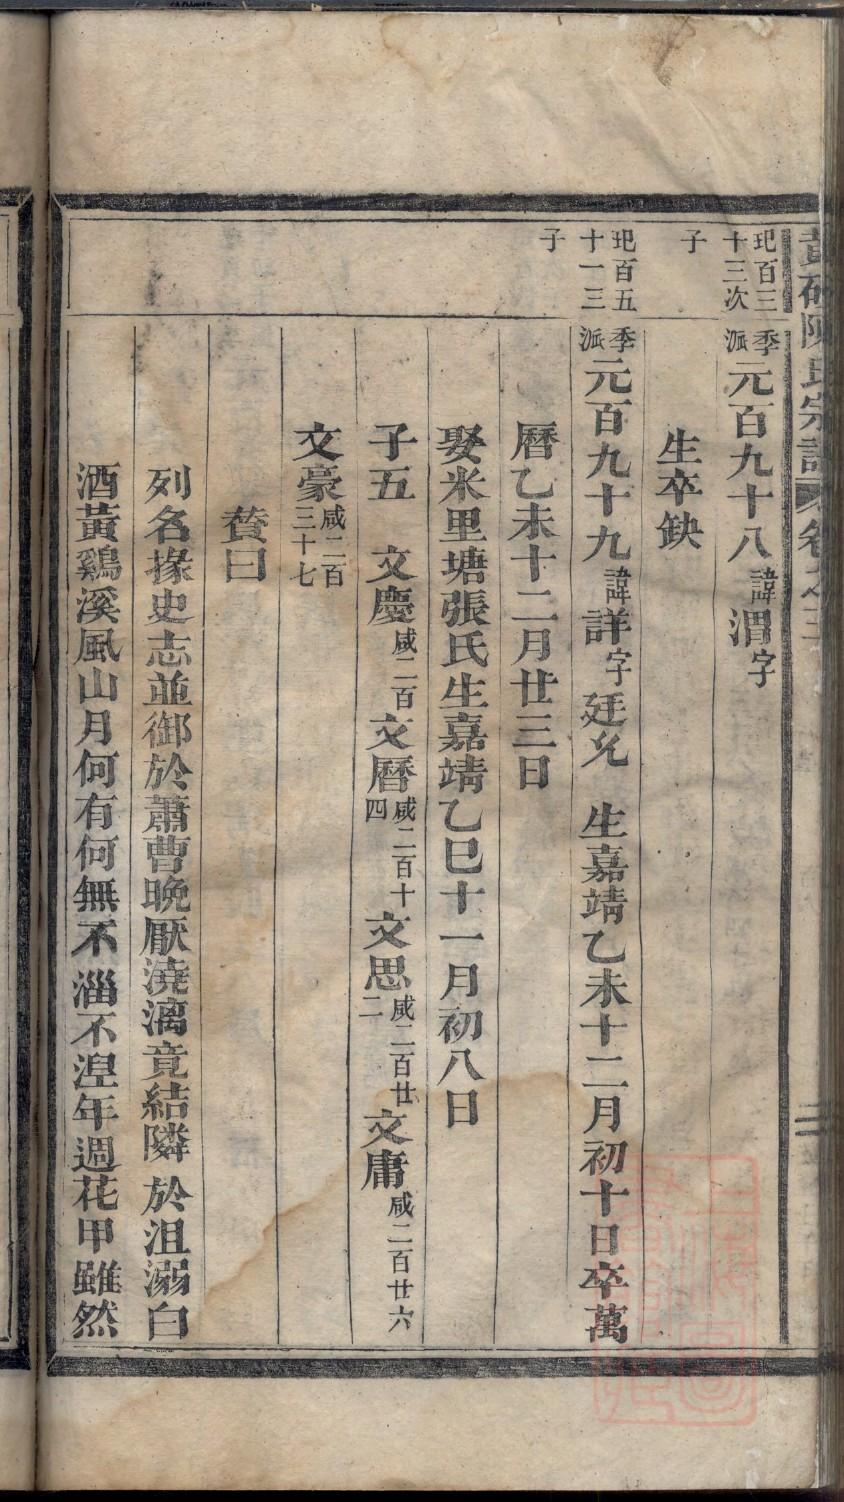 陳氏宗譜 卷之三
玘百三十三次子
季派元百九十八諱渭字
生卒缺
玘百五十一三子
季派元百九十九諱詳字廷允 生嘉靖乙未十二月初十日卒萬
曆乙未十二月廿三日
娶米里塘張氏生嘉靖乙巳十一月初八日
子五 文慶咸二百文曆咸二百十四文思咸二百廿二文庸咸二百廿六
文豪咸二百三十七
賛曰
列名掾史志並御於蕭曹晚厭澆漓竟結隣於沮溺白
酒黃鷄溪風山月何有何無不淄不湼年週花甲雖然